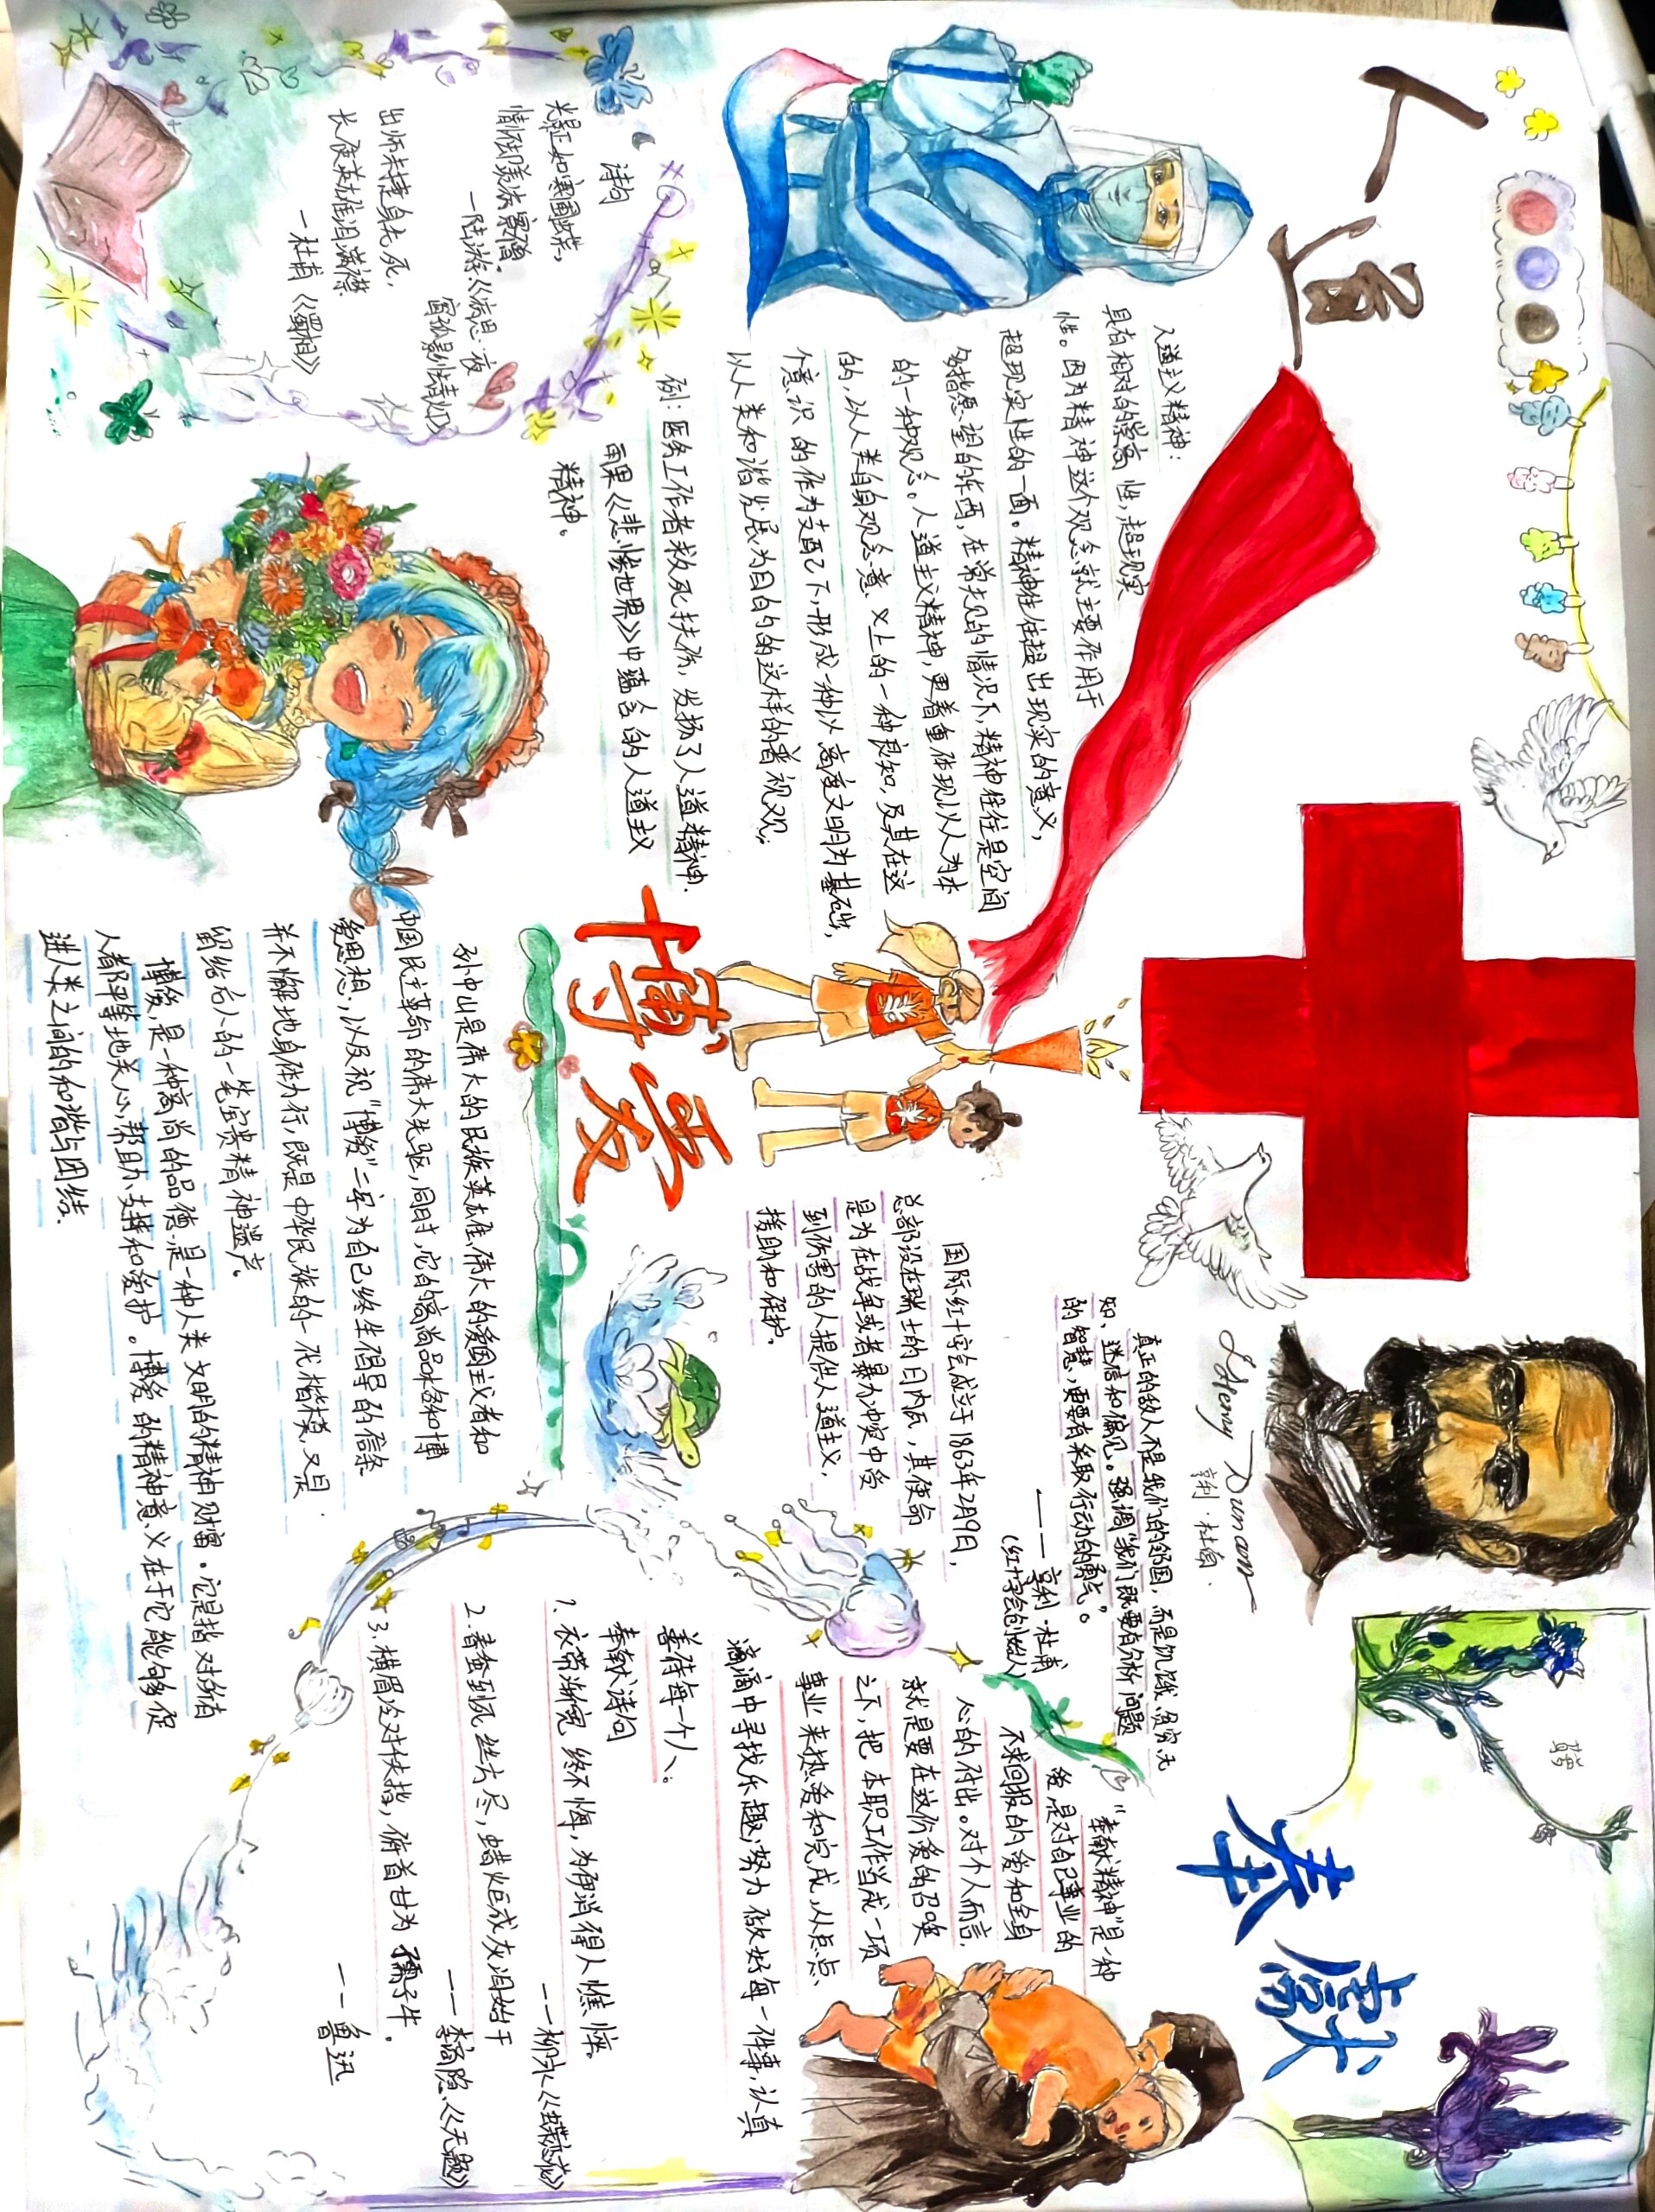 人道
人道主义精神：
具有相对的崇高性，超现实
性。因为精神这个观念就主要作用于
超现实性的一面。精神往往超出现实的意义，
多指愿望的东西，在常见的情况下，精神往往是空间
的一种观念。人道主义精神，更着重体现以人为本
的，以人类自身观念意义上的一种良知，及其在这
个意识的作为支配之下，形成一种以高度文明为基础，
以人类和谐发展为目的的这样的普视观；
例：医务工作者救死扶伤，发扬了人道精神．
雨果《悲惨世界》中蕴含的人道主义
精神。
诗句
光景正如寒圃蝶，
情怀却羡法窗僧．
—陆游《病思·夜
窗孤影怯青灯》
出师未捷身先死，
长使英雄泪满襟
—杜甫《蜀相》
博爱
孙中山是伟大的民族英雄、伟大的爱国主义者和
中国民主革命的伟大先驱，同时，它的高尚品味和博
爱思想，以及视“博爱”二字为自己终生倡导的信条
并不懈地身体力行，既是中华民族的一代楷模，又是
留给后人的一笔宝贵精神遗产。
博爱，是一种高尚的品德，是一种人类文明的精神财富．它是指对所有
人都平等地关心、帮助、支持和爱护。博爱的精神意义在于它能够促
进人类之间的和谐与团结．
国际红十字会成立于1863年2月9日，
总部设在瑞士的日内瓦，其使命
是为在战争或者暴力冲突中受
到伤害的人提供人道主义，
援助和保护。
Henry Dunant
亨利·杜南．
真正的敌人不是我们的邻国，而是饥饿、贫穷、无
知、迷信和偏见。强调“我们既要有分析问题
的智慧，更要有采取行动的勇气”。
——亨利·杜甫
（红十字会创始人
奉献
“奉献精神”是一种
爱，是对自己事业的
不求回报的爱和全身
心的付出。对个人而言，
就是要在这份爱的召唤
之下，把本职工作当成一项
事业来热爱和完成，从点点
滴滴中寻找乐趣；努力做好每一件事、认真
善待每一个人；
奉献诗句
1. 衣带渐宽终不悔，为伊消得人憔悴。
——柳永《蝶恋花》
2. 春蚕到死丝方尽，蜡炬成灰泪始干
——李商隐《无题》
3. 横眉冷对千夫指，俯首甘为孺子牛。
——鲁迅